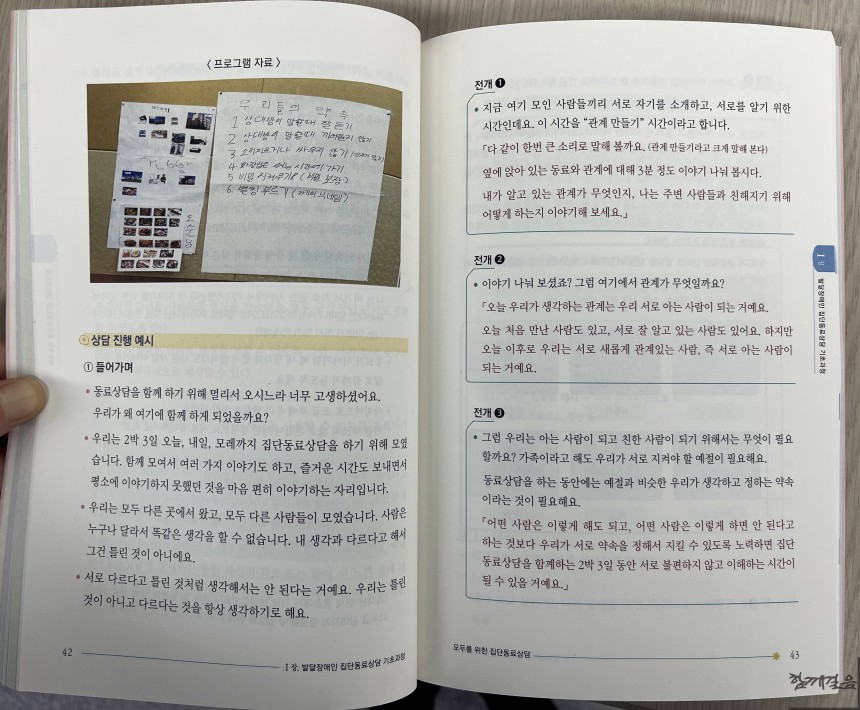 < 프로그램 자료 >
우리들의 약속
1 상대방이 말할때 잘 듣기
2 상대방이 말할때 끼어들지 않기
3 소리지르거나 싸우지 않기
4 화장실은 쉬는 시간에 가기
5 비밀 지켜주기 (비밀 보장)
6. 별칭 부르기
상담 진행 예시
① 들어가며
• 동료상담을 함께 하기 위해 멀리서 오시느라 너무 고생하셨어요.
우리가 왜 여기에 함께 하게 되었을까요?
• 우리는 2박 3일 오늘, 내일, 모레까지 집단동료상담을 하기 위해 모였
습니다. 함께 모여서 여러 가지 이야기도 하고, 즐거운 시간도 보내면서
평소에 이야기하지 못했던 것을 마음 편히 이야기하는 자리입니다.
• 우리는 모두 다른 곳에서 왔고, 모두 다른 사람들이 모였습니다. 사람은
누구나 달라서 똑같은 생각을 할 수 없습니다. 내 생각과 다르다고 해서
그건 틀린 것이 아니에요.
• 서로 다르다고 틀린 것처럼 생각해서는 안 된다는 거예요. 우리는 틀린
것이 아니고 다르다는 것을 항상 생각하기로 해요.
42
Ⅰ장. 발달장애인 집단동료상담 기초과정
전개 ❶
• 지금 여기 모인 사람들끼리 서로 자기를 소개하고, 서로를 알기 위한
시간인데요. 이 시간을 “관계 만들기” 시간이라고 합니다.
「다 같이 한번 큰 소리로 말해 볼까요. (관계 만들기라고 크게 말해 본다)
옆에 앉아 있는 동료와 관계에 대해 3분 정도 이야기 나눠 봅시다.
내가 알고 있는 관계가 무엇인지, 나는 주변 사람들과 친해지기 위해
어떻게 하는지 이야기해 보세요.」
전개 ❷
• 이야기 나눠 보셨죠? 그럼 여기에서 관계가 무엇일까요?
「오늘 우리가 생각하는 관계는 우리 서로 아는 사람이 되는 거예요.
오늘 처음 만난 사람도 있고, 서로 잘 알고 있는 사람도 있어요. 하지만
오늘 이후로 우리는 서로 새롭게 관계있는 사람, 즉 서로 아는 사람이
되는 거예요.
전개 ❸
• 그럼 우리는 아는 사람이 되고 친한 사람이 되기 위해서는 무엇이 필요
할까요? 가족이라고 해도 우리가 서로 지켜야 할 예절이 필요해요.
동료상담을 하는 동안에는 예절과 비슷한 우리가 생각하고 정하는 약속
이라는 것이 필요해요.
「어떤 사람은 이렇게 해도 되고, 어떤 사람은 이렇게 하면 안 된다고
하는 것보다 우리가 서로 약속을 정해서 지킬 수 있도록 노력하면 집단
동료상담을 함께하는 2박 3일 동안 서로 불편하지 않고 이해하는 시간이
될 수 있을 거예요.」
Ⅰ장
발달장애인 집단동료상담 기초과정
모두를 위한 집단동료상담
43
함께걸음